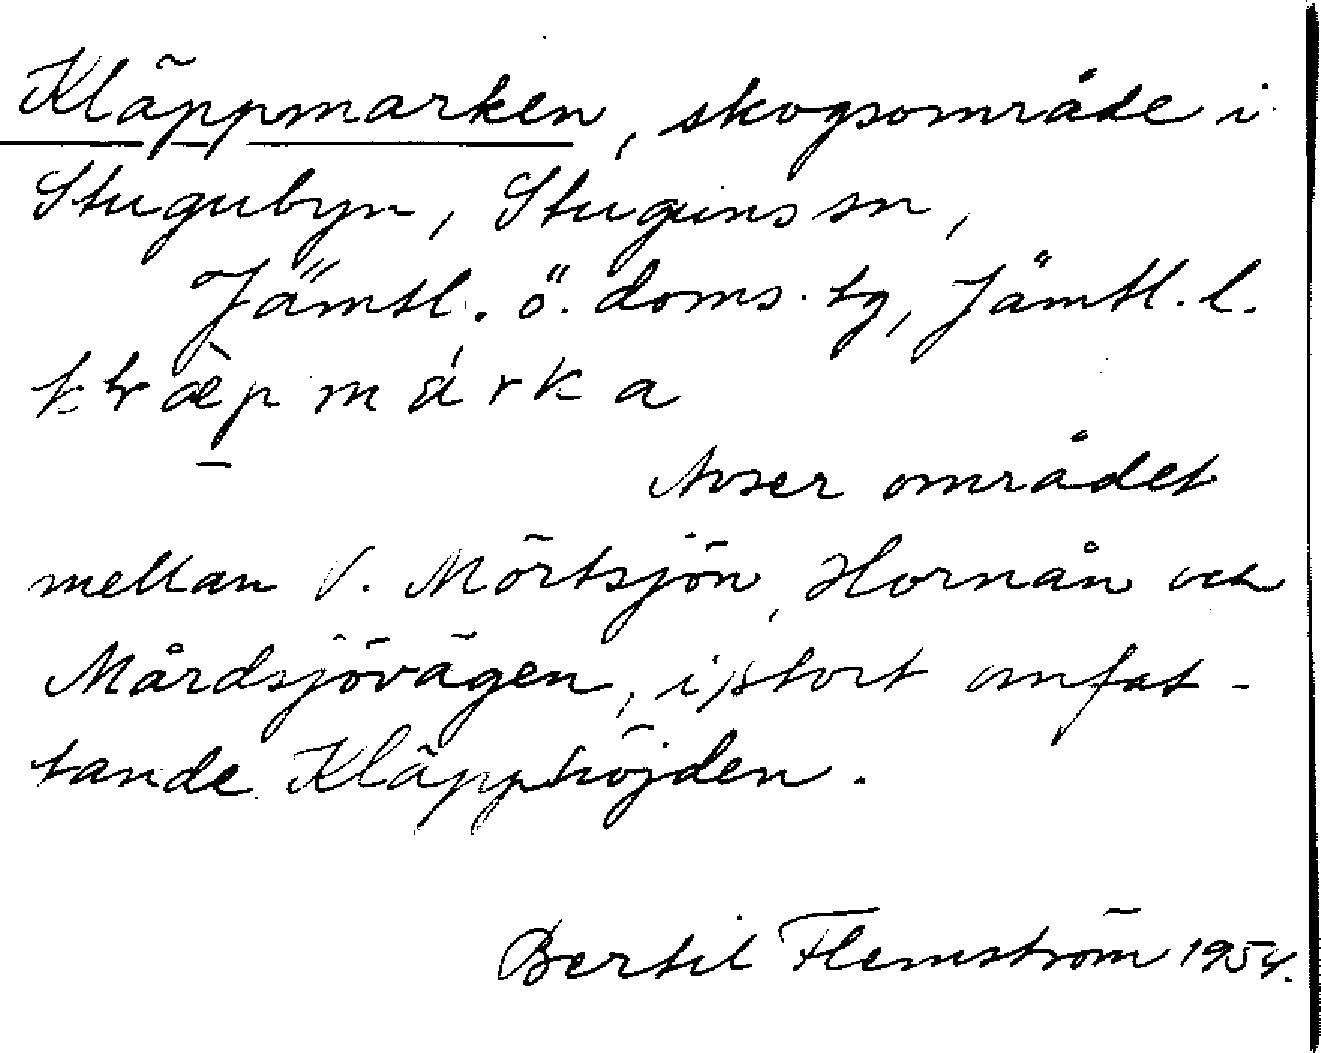 Kläppmarken, skogsområde i
Stugubyn, Stuguns sn,
Jämtl. ö. doms. tg, Jämtl. l.
området
mellan V. Mörtsjön, Hornån och
Mårdsjövägen, i stort omfat-
tande Kläpphöjden.
Bertil Flemström 1954.